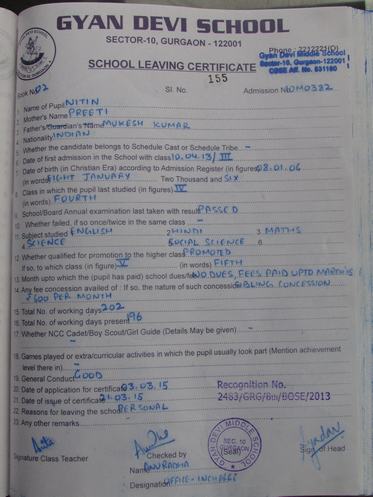 GYAN DEVI SCHOOL
SECTOR-10, GURGAON - 122001
Phone - 2212221(O)
Gyan Devi Middle School
Sector-10, Gurgaon-122001
CBSE Aff. No. 531180
SCHOOL LEAVING CERTIFICATE
155
Book No. 02 Sl. No. Admission No.
1. Name of Pupil NITIN
2. Mother's Name PREETI
3. Father's/Guardian's Name MUKESH KUMAR
4. Nationality INDIAN
5. Whether the candidate belongs to Schedule Cast or Schedule Tribe -
6. Date of first admission in the School with class 10.04.13/ III
7. Date of birth (in Christian Era) according to Admission Register (in figures) 08.01.06
(in words) EIGHT JANUARY Two Thousand and SIX
8. Class in which the pupil last studied (in figures) IV
(in words) FOURTH
9. School/Board Annual examination last taken with result PASSED
10. Whether failed, if so once/twice in the same class -
11. Subject studied ENGLISH 2 HINDI 3 MATHS
4. SCIENCE SOCIAL SCIENCE 6.
12. Whether qualified for promotion to the higher class PROMOTED
If so, to which class (in figure) V (in words) FIFTH
13. Month upto which the (pupil has paid) school dues NO DUES, FEES PAID UPTO
14. Any fee concession availed of : If so, the nature of such concession SIBLING CONCESSION
₹600 PER MONTH
15. Total No. of working days 202
16. Total No. of working days present 196
17. Whether NCC Cadet/Boy Scout/Girl Guide (Details May be given) -
18. Games played or extra/curricular activities in which the pupil usually took part (Mention achievement
level there in) -
19. General Conduct GOOD
20. Date of application for certificate 03.03.15
21. Date of issue of certificate 21.03.15
22. Reasons for leaving the school PERSONAL
23. Any other remarks
Recognition No.
2483/GRG/8th/BOSE/2013
GYAN DEVI MIDDLE SCHOOL
SEC. 10
GURGAON
Signature Class Teacher Checked by Seal Sign. of Head
Name ANURADHA
Designation OFFICE-INCHARGE